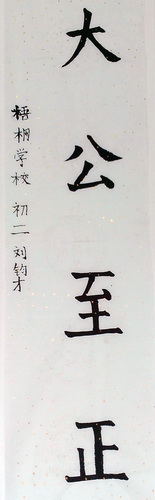 大公至正
梧桐学校 初二 刘钧才